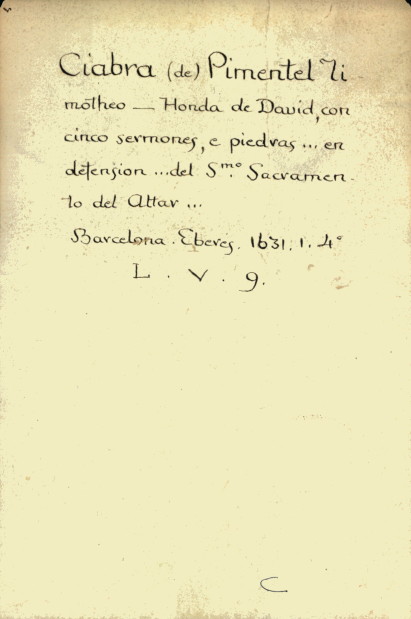 Ciabra (de) Pimentel Ti
motheo — Honda de David, con
cinco sermones, e piedras ... en
defension ... del S.mo Sacramen-
to del Altar ...
Barcelona. Eberes. 1631. 1. 4º
L. V. 9.
C